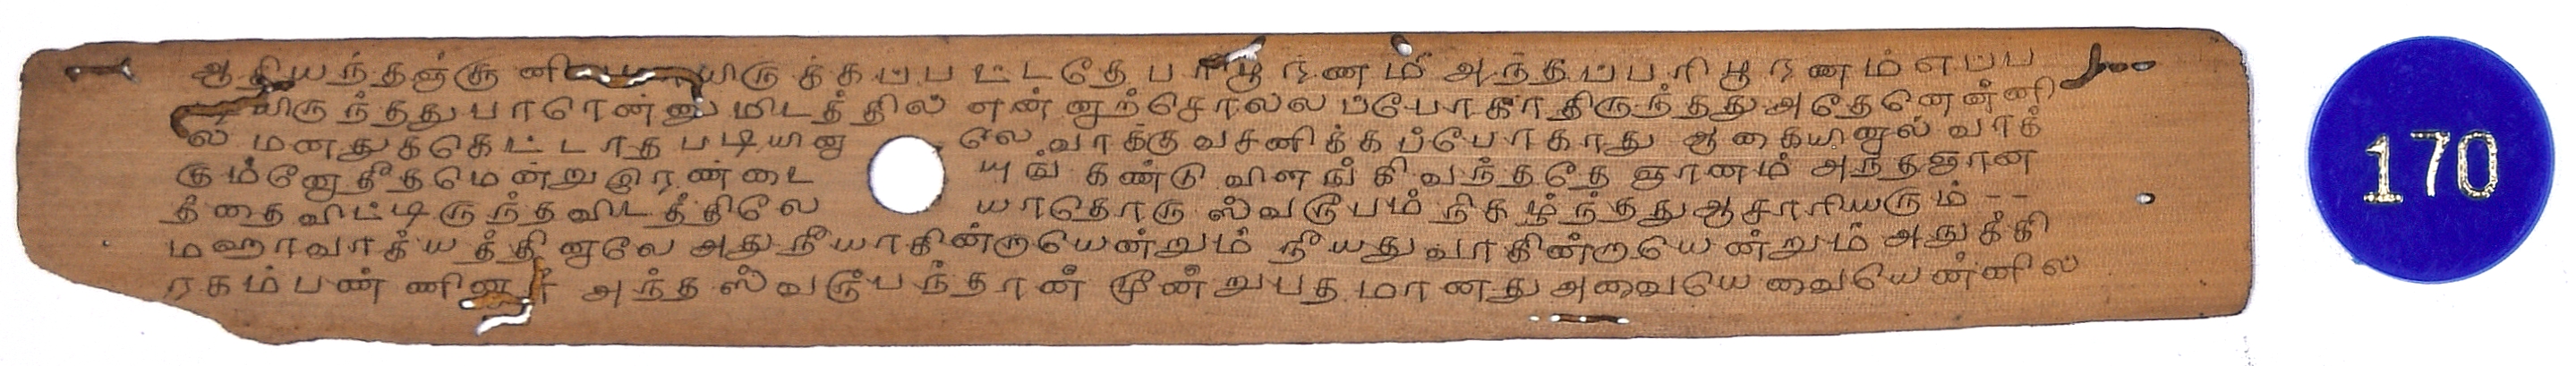 ஆதியந்தஞ்சூ னி யிருக்கப்பட்டதே பரிபூர்ணம் அந்தப்பரிபூர்ணம்எப்ப
யிருந்ததுபாரென்னுமிடத்தில் என்னாற்சொல்லப்போகாதிருந்தது அதேனென்னி
ல் மனதுக்கெட்டாதபடியினா லே வாக்குவசனிக்கப்போகாது ஆகையினால் வாக்
கும்னோதீதமென்றுஇரண்டை யுங் கண்டு விளங்கிவந்ததே ஞானம் அந்தஞான
தீதைவிட்டிருந்தவிடத்திலே யாதொரு ஸ்வரூபம் நிகழ்ந்தது ஆசாரியரும் --
மஹாவாக்யத்தினாலே அதுநீயாகின்றாயென்றும் நீயதுவாகின்றாயென்றும் அநுக்கி
ரகம்பண்ணினார் அந்தஸ்வரூபந்தான் மூன்றுபதமானது அவையெவையென்னில்
170